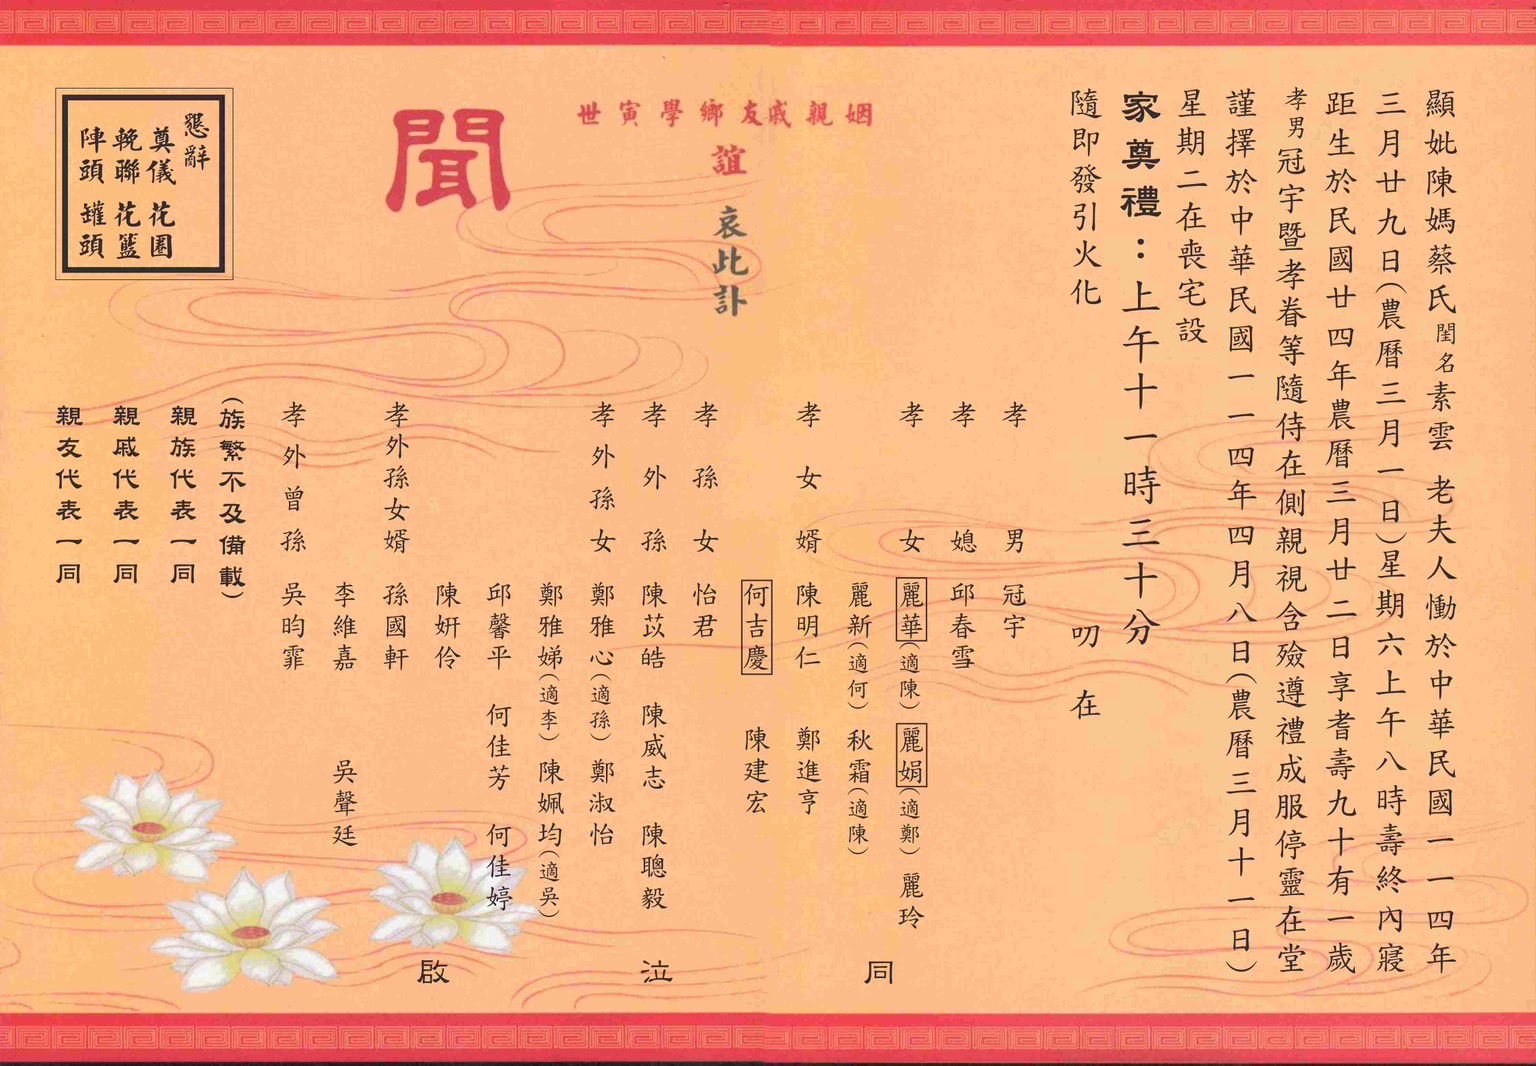 顯妣陳媽蔡氏閨名素雲 老夫人慟於中華民國一一四年
三月廿九日(農曆三月一日)星期六上午八時壽終內寢
距生於民國廿四年農曆三月廿二日享耆壽九十有一歲
孝男冠宇暨孝眷等隨侍在側親視含殮遵禮成服停靈在堂
謹擇於中華民國一一四年四月八日(農曆三月十一日)
星期二在喪宅設
家奠禮：上午十一時三十分
隨即發引火化
叨在
姻親戚友鄉學寅世
誼
哀此訃
聞
孝男 冠宇
孝媳 邱春雪
孝女 麗華(適陳) 麗娟(適鄭) 麗玲
麗新(適何) 秋霜(適陳)
孝女婿 陳明仁 鄭進亨
何吉慶 陳建宏
孝孫女 怡君
孝外孫 陳苡皓 陳威志 陳聰毅
孝外孫女 鄭雅心(適孫) 鄭淑怡
鄭雅娣(適李) 陳姵均(適吳)
邱馨平 何佳芳 何佳婷
陳姸伶
孝外孫女婿 孫國軒
李維嘉 吳聲廷
孝外曾孫 吳昀霏
(族繁不及備載)
親族代表一同
親戚代表一同
親友代表一同
同泣啟
懇辭
奠儀 花圈
輓聯 花籃
陣頭 罐頭